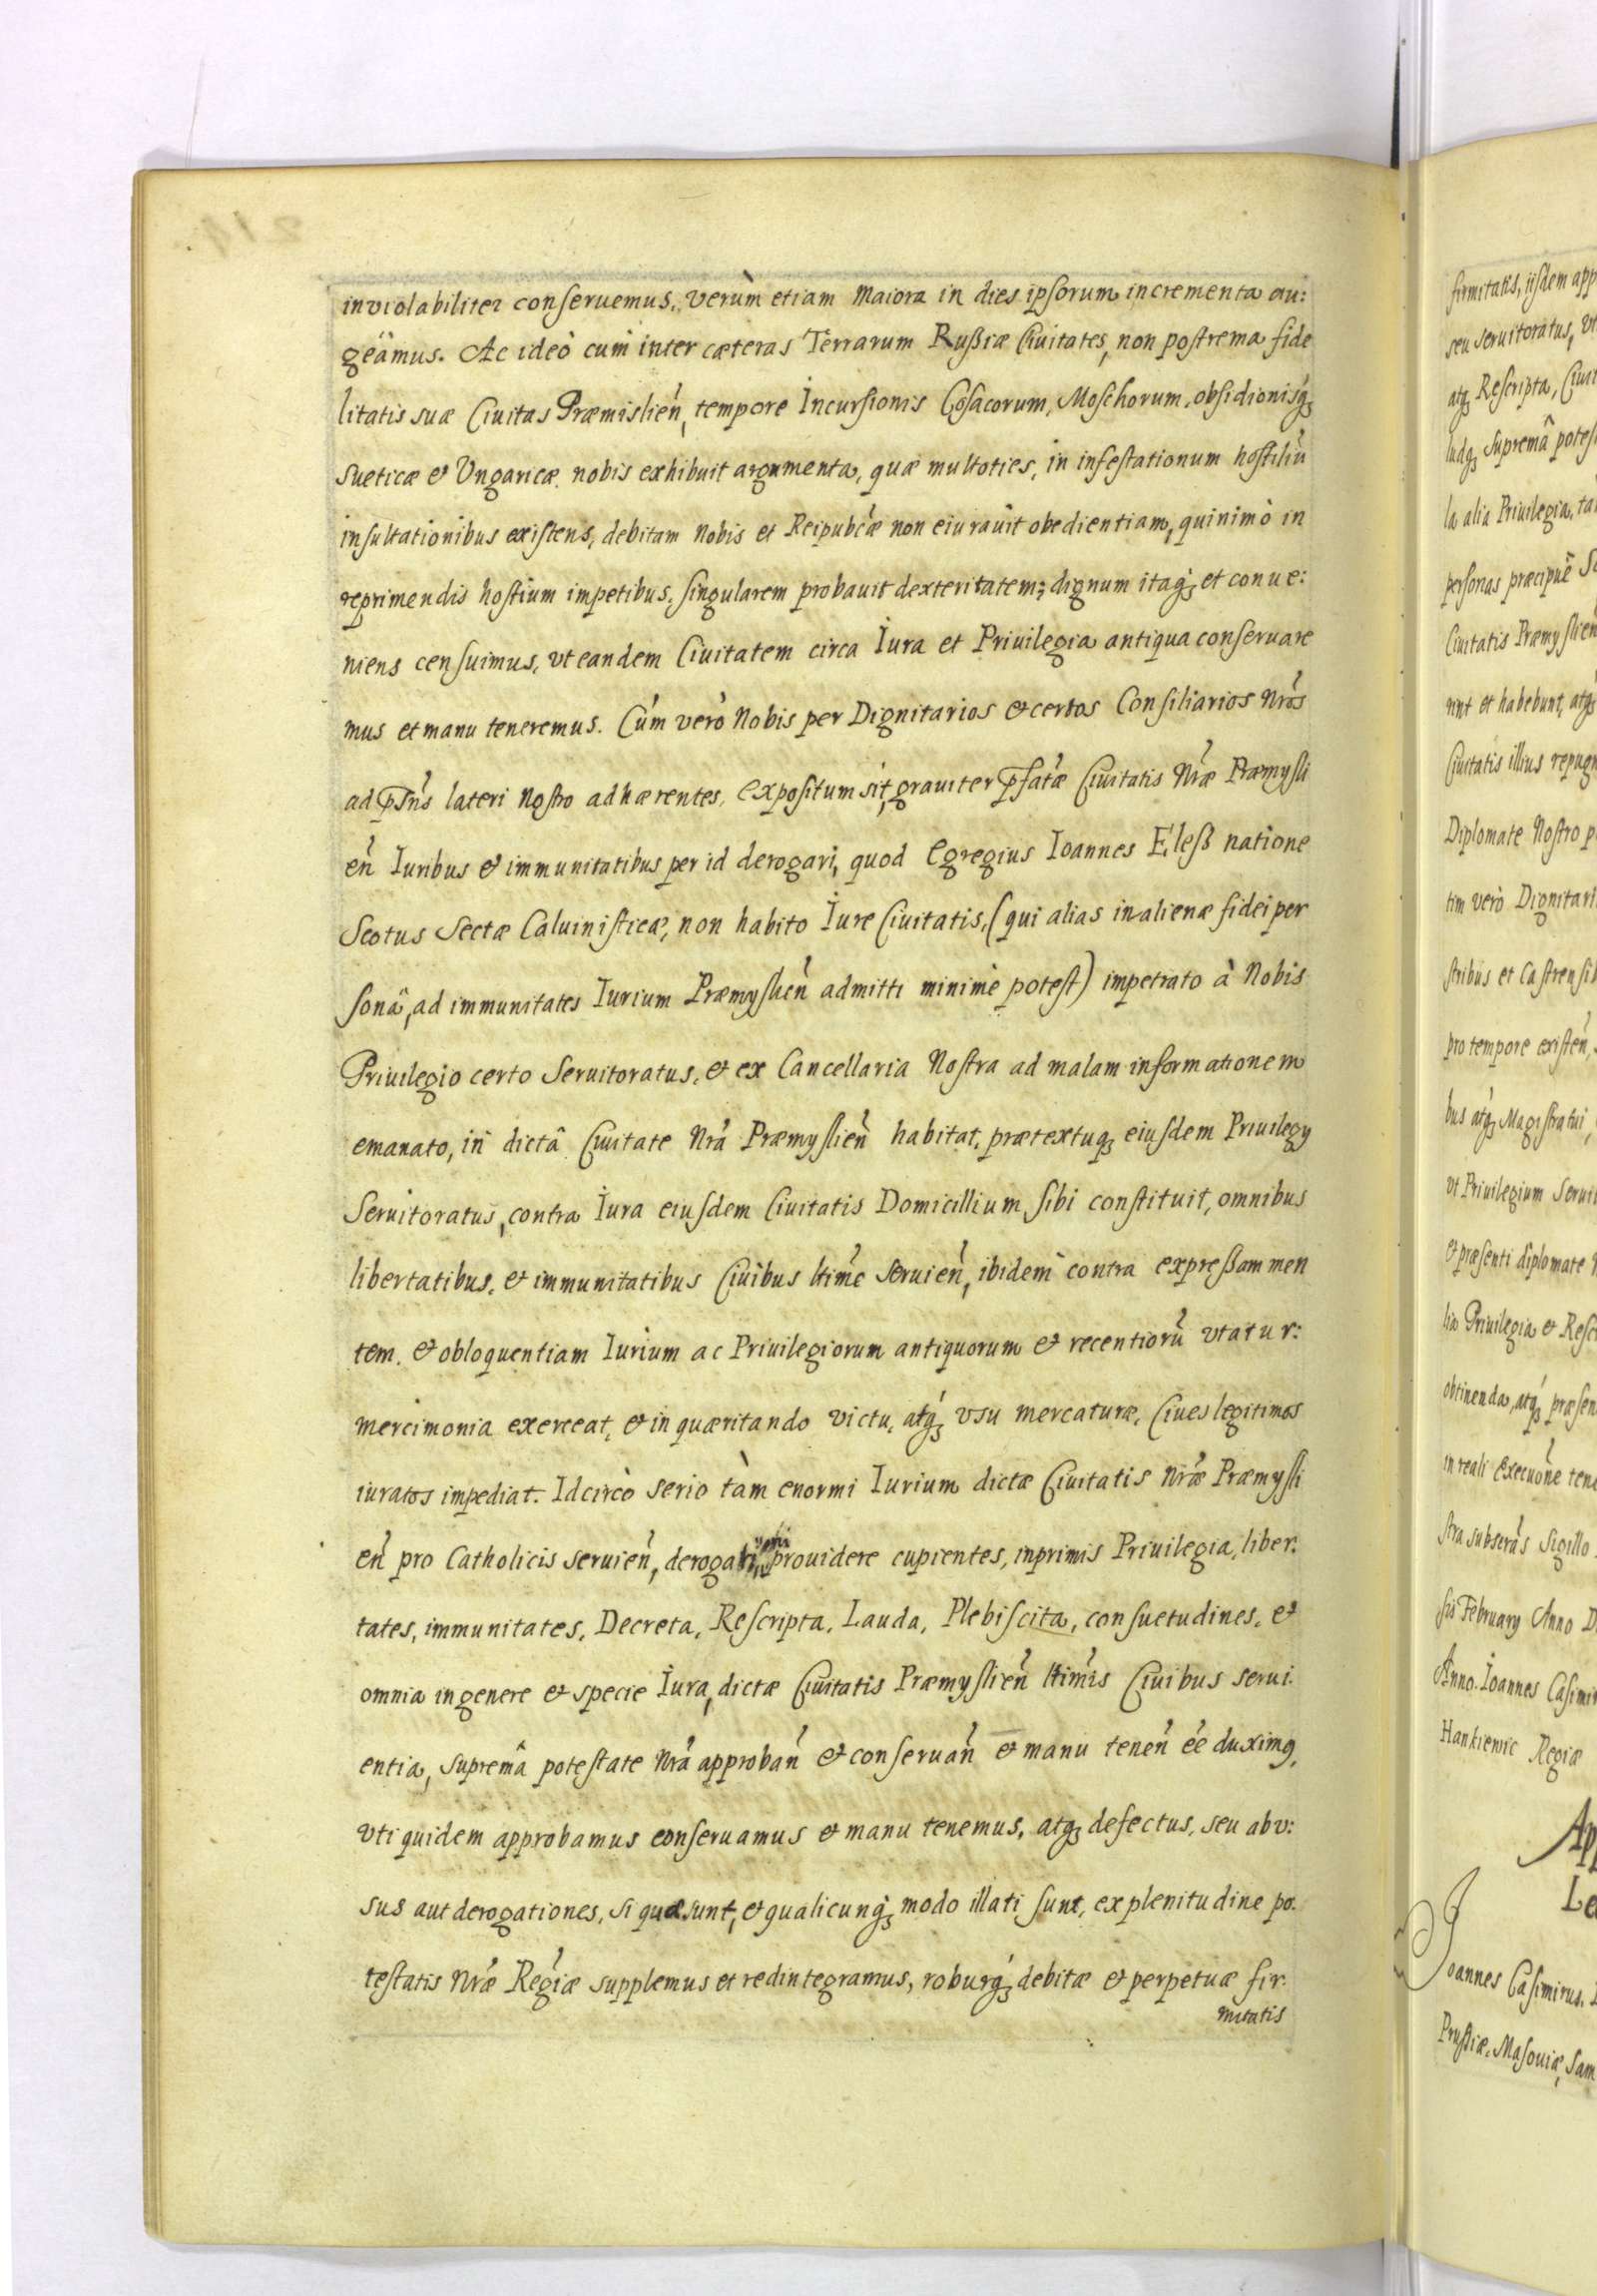 inviolabiliter conseruemus, verùm etiam Maiora in dies ipsorum incrementa au:
geâmus. Ac ideò cum inter cæteras Terrarum Rußiæ Ciuitates, non postrema fide
litatis suæ Ciuitas Præmislień, tempore Incursionis Cosacorum, Moschorum, obsidionisq́
Sueticæ et Ungaricæ nobis exhibuit argumenta, quæ multoties, in infestationum hostiliū
insultationibus existens, debitam Nobis et Reipubćæ non eiurauit obedientiam, quinimò in
reprimendis hostium impetibus, singularem probauit dexteritatem; dignum itaq́ et conue:
niens censuimus, vt eandem Ciuitatem circa Iura et Priuilegia antiqua conseruare
mus et manu teneremus. Cúm verò Nobis per Dignitarios et certos Consiliarios Nŕos
ad p̄sńs lateri Nostro adhærentes, expositum sit, grauiter p̄fatæ Ciuitatis Nŕæ Præmysli
eń Iuribus et immunitatibus per id derogari, quod Egregius Ioannes E'leß natione
Scotus Sectæ Caluinisticæ, non habito Iure Ciuitatis, (qui alias in alienæ fidei per
sonâ, ad immunitates Iurium Præmyslień admitti minimè potest) impetrato à Nobis
Priuilegio certo Seruitoratus, et ex Cancellaria Nostra ad malam informationem
emanato, in dictâ Ciuitate Nŕa Præmyslień habitat, prætextuq́ eiusdem Priuilegy
Seruitoratus, contra Iura eiusdem Ciuitatis Domicillium sibi constituit, omnibus
libertatibus, et immunitatibus Ciuibus ltimé seruień, ibidem contra expreßam men
tem, et obloquentiam Iurium ac Priuilegiorum antiquorum et recentiorū vtatur:
mercimonia exerceat, et in quæritando victu, atq́ vsu mercaturæ, Ciues legitimos
iuratos impediat. Idcircò serio tàm enormi Iurium dictæ Ciuitatis Nŕæ Præmysli
eń pro Catholicis seruień, derogationi prouidere cupientes, inprimis Priuilegia, liber:
tates, immunitates, Decreta, Rescripta, Lauda, Plebiscita, consuetudines, et
omnia in genere et specie Iura, dictæ Ciuitatis Præmyslień ltimís Ciuibus serui.
entia, supremâ potestate Nŕa approbań et conseruań et manu teneń éé duximq,
vti quidem approbamus conseruamus et manu tenemus, atq́ defectus, seu abv:
sus aut derogationes, si quæ sunt, et qualicunq́ modo illati sunt, ex plenitudine po.
testatis Nŕæ Regíæ supplemus et redintegramus, roburq́ debitæ et perpetuæ fir:
mitatis
firmitatis, iisdem app
seu seruitoratus, vt
atq́ Rescripta, Ciui
ludq́ Supremâ potes
la alia Priuilegia, ta
personas præcipuè Sc
Ciuitatis Præmyslień
unt et habebunt, atq́
Ciuitatis illius repug
Diplomate Nostro p
tim verò Dignitari
stribus et Castrensib
pro tempore existeń,
bus atq́ Magistratui,
vt Priuilegium Serui
et præsenti diplomate N
lia Priuilegia et Resc
obtinenda, atq́ præsen
in reali execuōne tene
stra subscrás Sigillo
sis February Anno D
Anno. Ioannes Casimir
Hankiewic Regiæ
Ap
Le
Ioannes Casimirus.
Prußiæ, Masouiæ, Sam